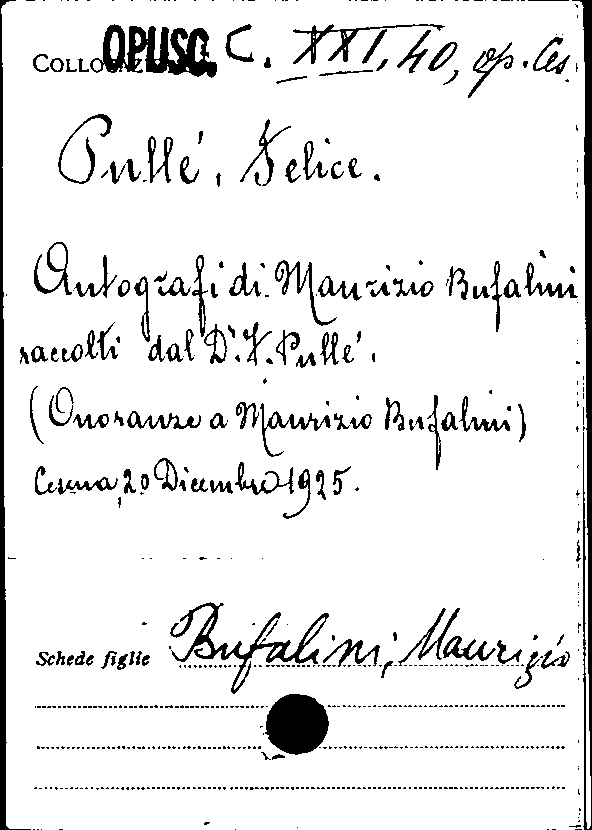 COLLOCAZIONE OPUSC. C. XXI, 40, op. Ces.
Pullé, Felice.
Autografi di Maurizio Bufalini
raccolti dal Dr. F. Pullé.
(Onoranze a Maurizio Bufalini)
Cesena, 20 Dicembre 1925.
Schede figlie Bufalini, Maurizio